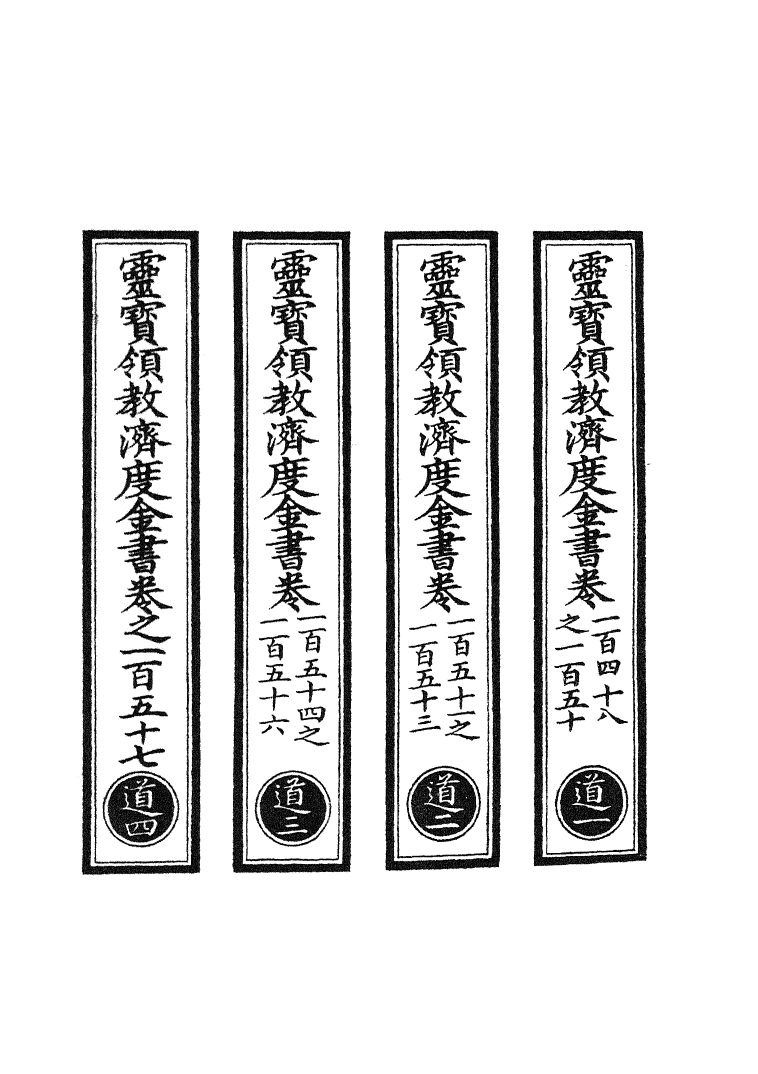 靈寶領教濟度金書卷
一百四十八
之一百五十
道一
靈寶領教濟度金書卷
一百五十一之
一百五十三
道二
靈寶領教濟度金書卷
一百五十四之
一百五十六
道三
靈寶領教濟度金書卷之一百五十七
道四